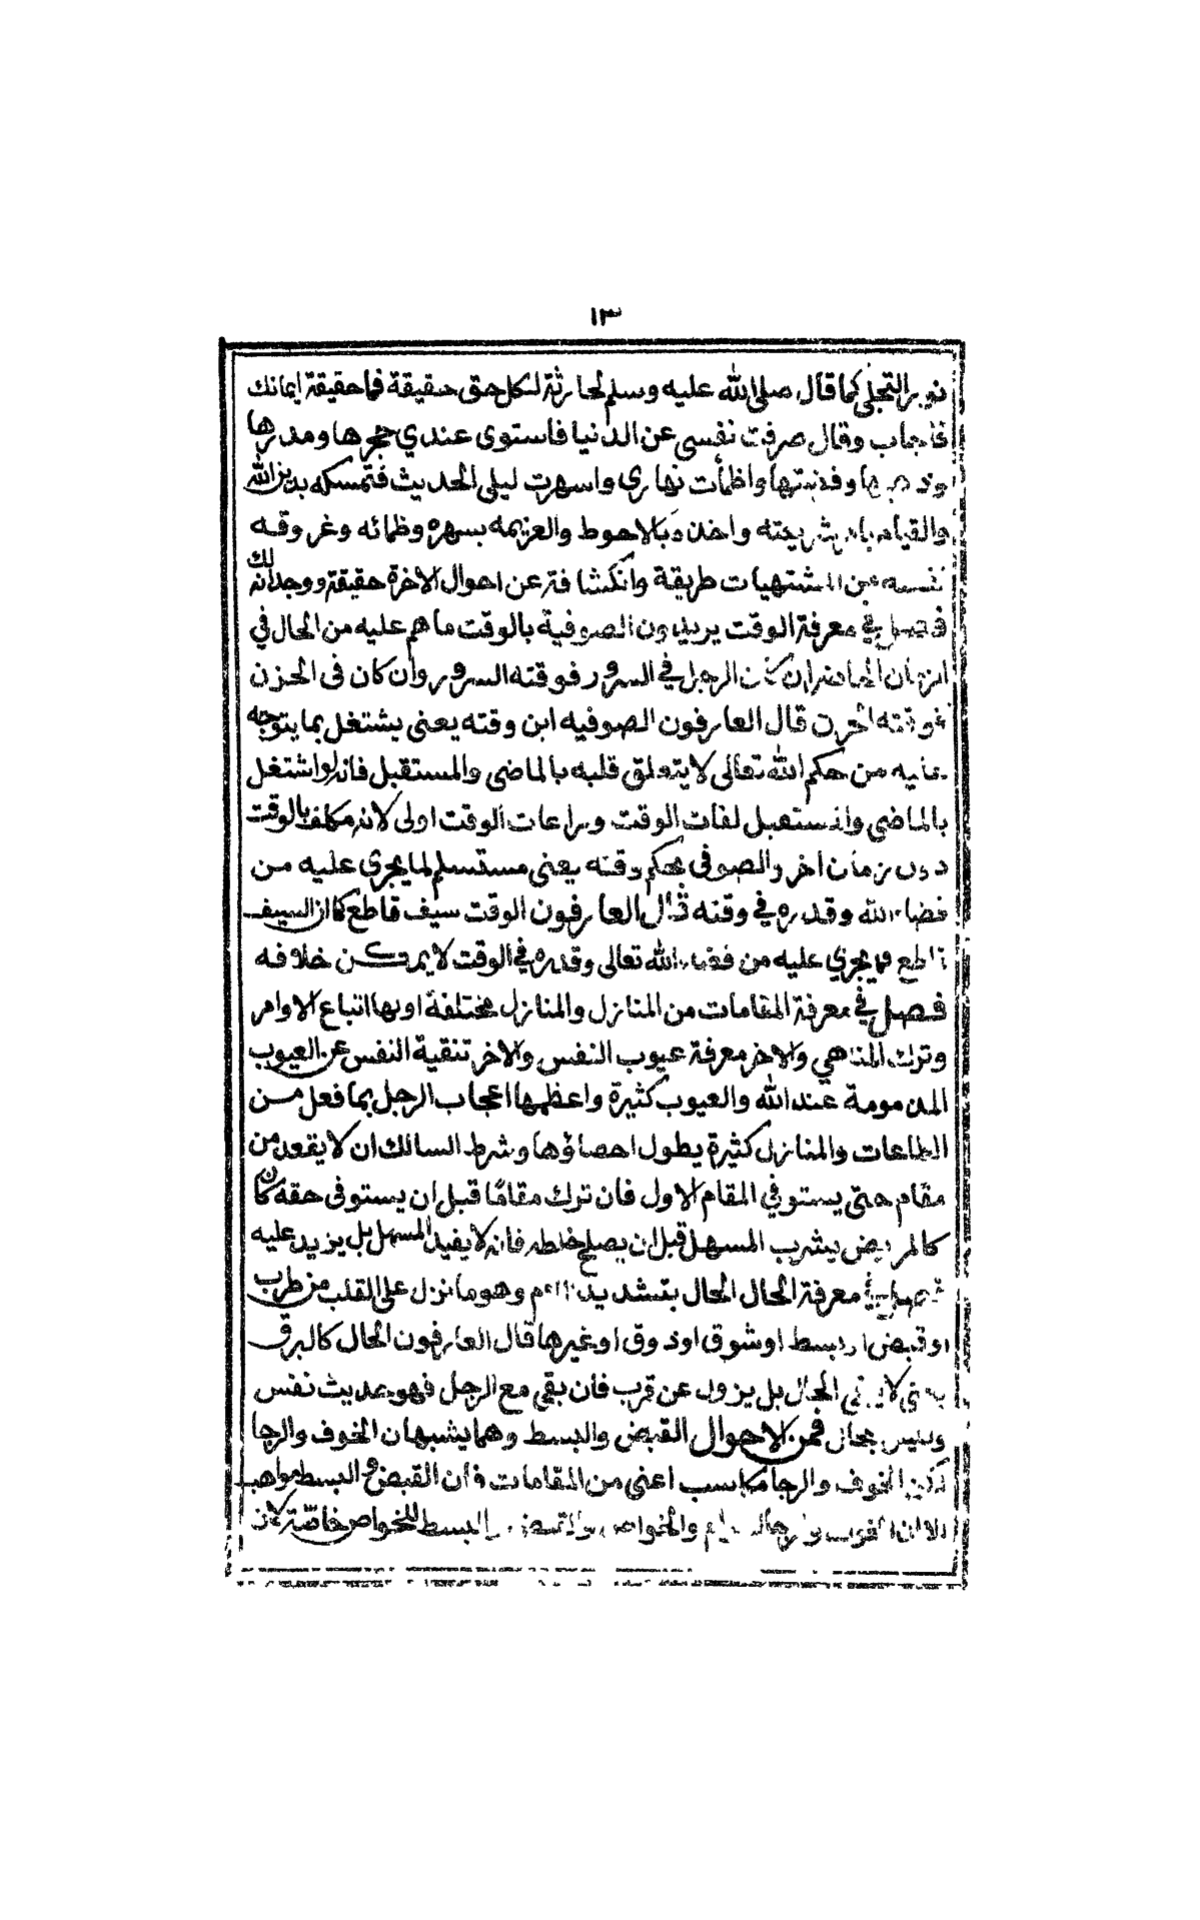 ١٣
نور التجلى كما قال صلى الله عليه وسلم لحارثة لكل حق حقيقة فما حقيقة ايمانك
فاجاب وقال صرفت نفسي عن الدنيا فاستوى عندي حجرها ومدرها
وذهبها وفضتها واظمأت نهاري واسهرت ليلى الحديث فتمسكه بدين الله
والقيام بامر شريعته واخذه بالاحوط والعزيمه بسهره وظمائه وعزوفه
نفسه عن المشتهيات طريقة وانكشافه عن احوال الاخرة حقيقة ووجدانه لك
فصل في معرفة الوقت يريدون الصوفية بالوقت ما هم عليه من الحال في
الزمان الحاضر ان كان الرجل في السرور فوقته السرور وان كان فى الحزن
فوقته الحزن قال العارفون الصوفيه ابن وقته يعنى يشتغل بما يتوجه
عليه من حكم الله تعالى لا يتعلق قلبه بالماضي والمستقبل فانه لو اشتغل
بالماضي والمستقبل لفات الوقت ومراعات الوقت اولى لانه مكلف بالوقت
دون زمان اخر والصوفى بحكم وقته يعني مستسلم لما يجرى عليه من
قضاء الله وقدره في وقته قال العارفون الوقت سيف قاطع كما ان السيف
قاطع فما يجري عليه من قضاء الله تعالى وقدره في الوقت لا يمكن خلافه
فصل في معرفة المقامات من المنازل والمنازل مختلفة اولها اتباع الاوامر
وترك المناهي والاخر معرفة عيوب النفس والاخر تنقية النفس عن العيوب
المذمومة عند الله والعيوب كثيرة واعظمها اعجاب الرجل بما فعل من
الطاعات والمنازل كثيرة يطول احصاؤها وشرط السالك ان لا يقعد من
مقام حتى يستوفي المقام الاول فان ترك مقامًا قبل ان يستوفى حقه كان
كالمريض يشرب المسهل قبل ان يصلح خلطه فانه لا يفيد المسهل بل يزيد عليه
فصل في معرفة الحال الحال بتشديد اللام وهو ما نزل على القلب من طرب
او قبض او بسط او شوق او ذوق او غيرها قال العارفون الحال كالبرق
يعني لا يبقي الحال بل يزول عن قرب فان بقي مع الرجل فهو حديث نفس
وليس بحال فمن الاحوال القبض والبسط وهما يشبهان الخوف والرجا
لكن الخوف والرجا مكاسب اعني من المقامات فان القبض والبسط مواهب
الا ان الخوف والرجا والخواص والقبض والبسط للخواص خاصّة لان